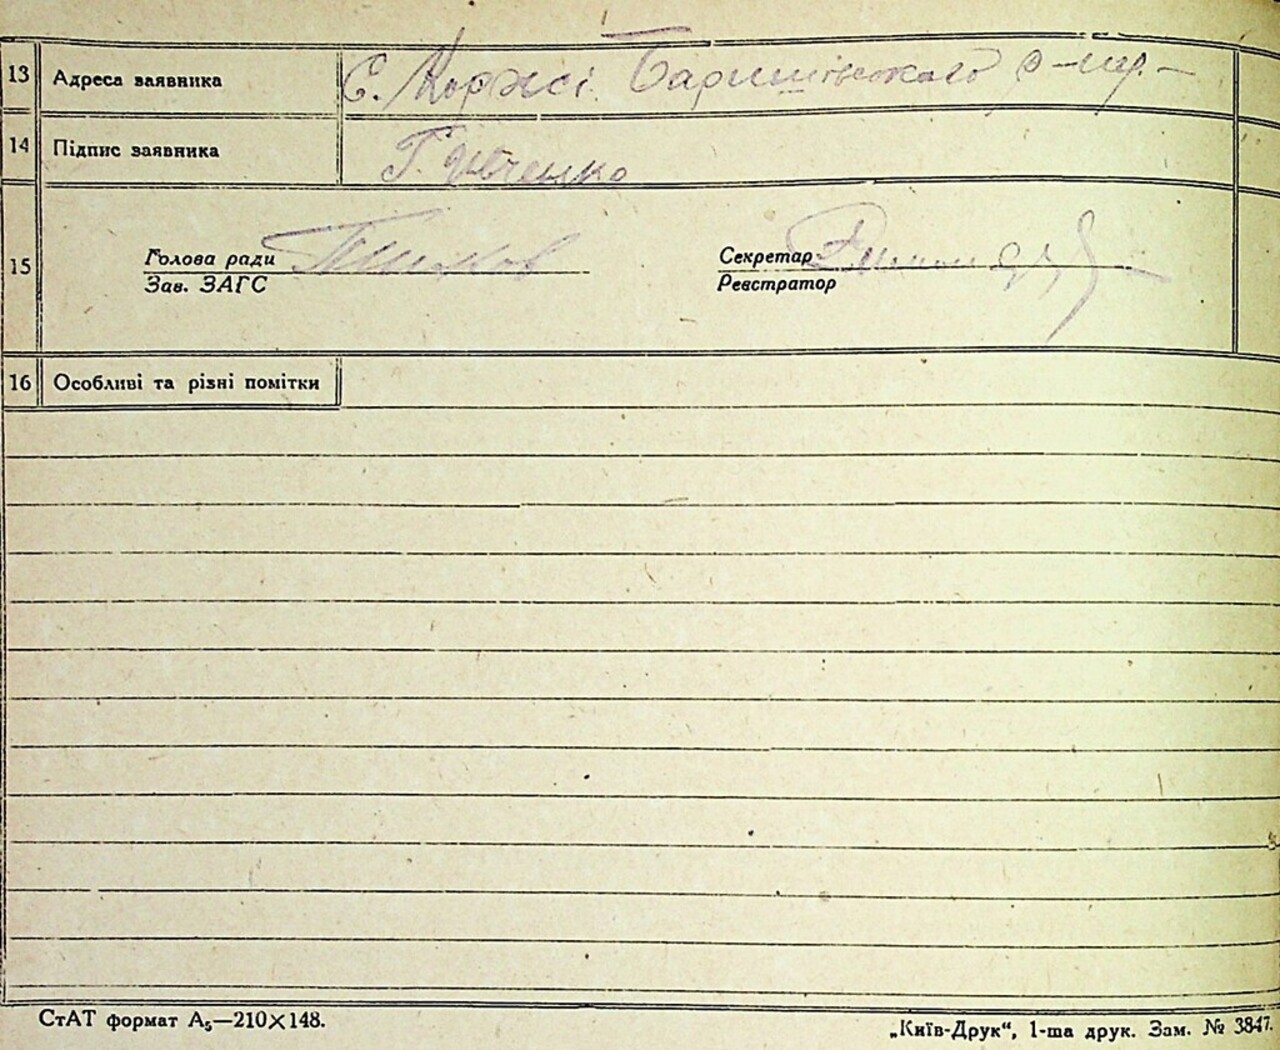 13 Адреса заявника С. Коржі Баришівського р-ну.
14 Підпис заявника Г. Івченко
15 Голова ради Секретар
Зав. ЗАГС Реєстратор
16 Особливі та різні помітки
СтАТ формат А₅—210×148.
„Київ-Друк“, 1-ша друк. Зам. № 3847.